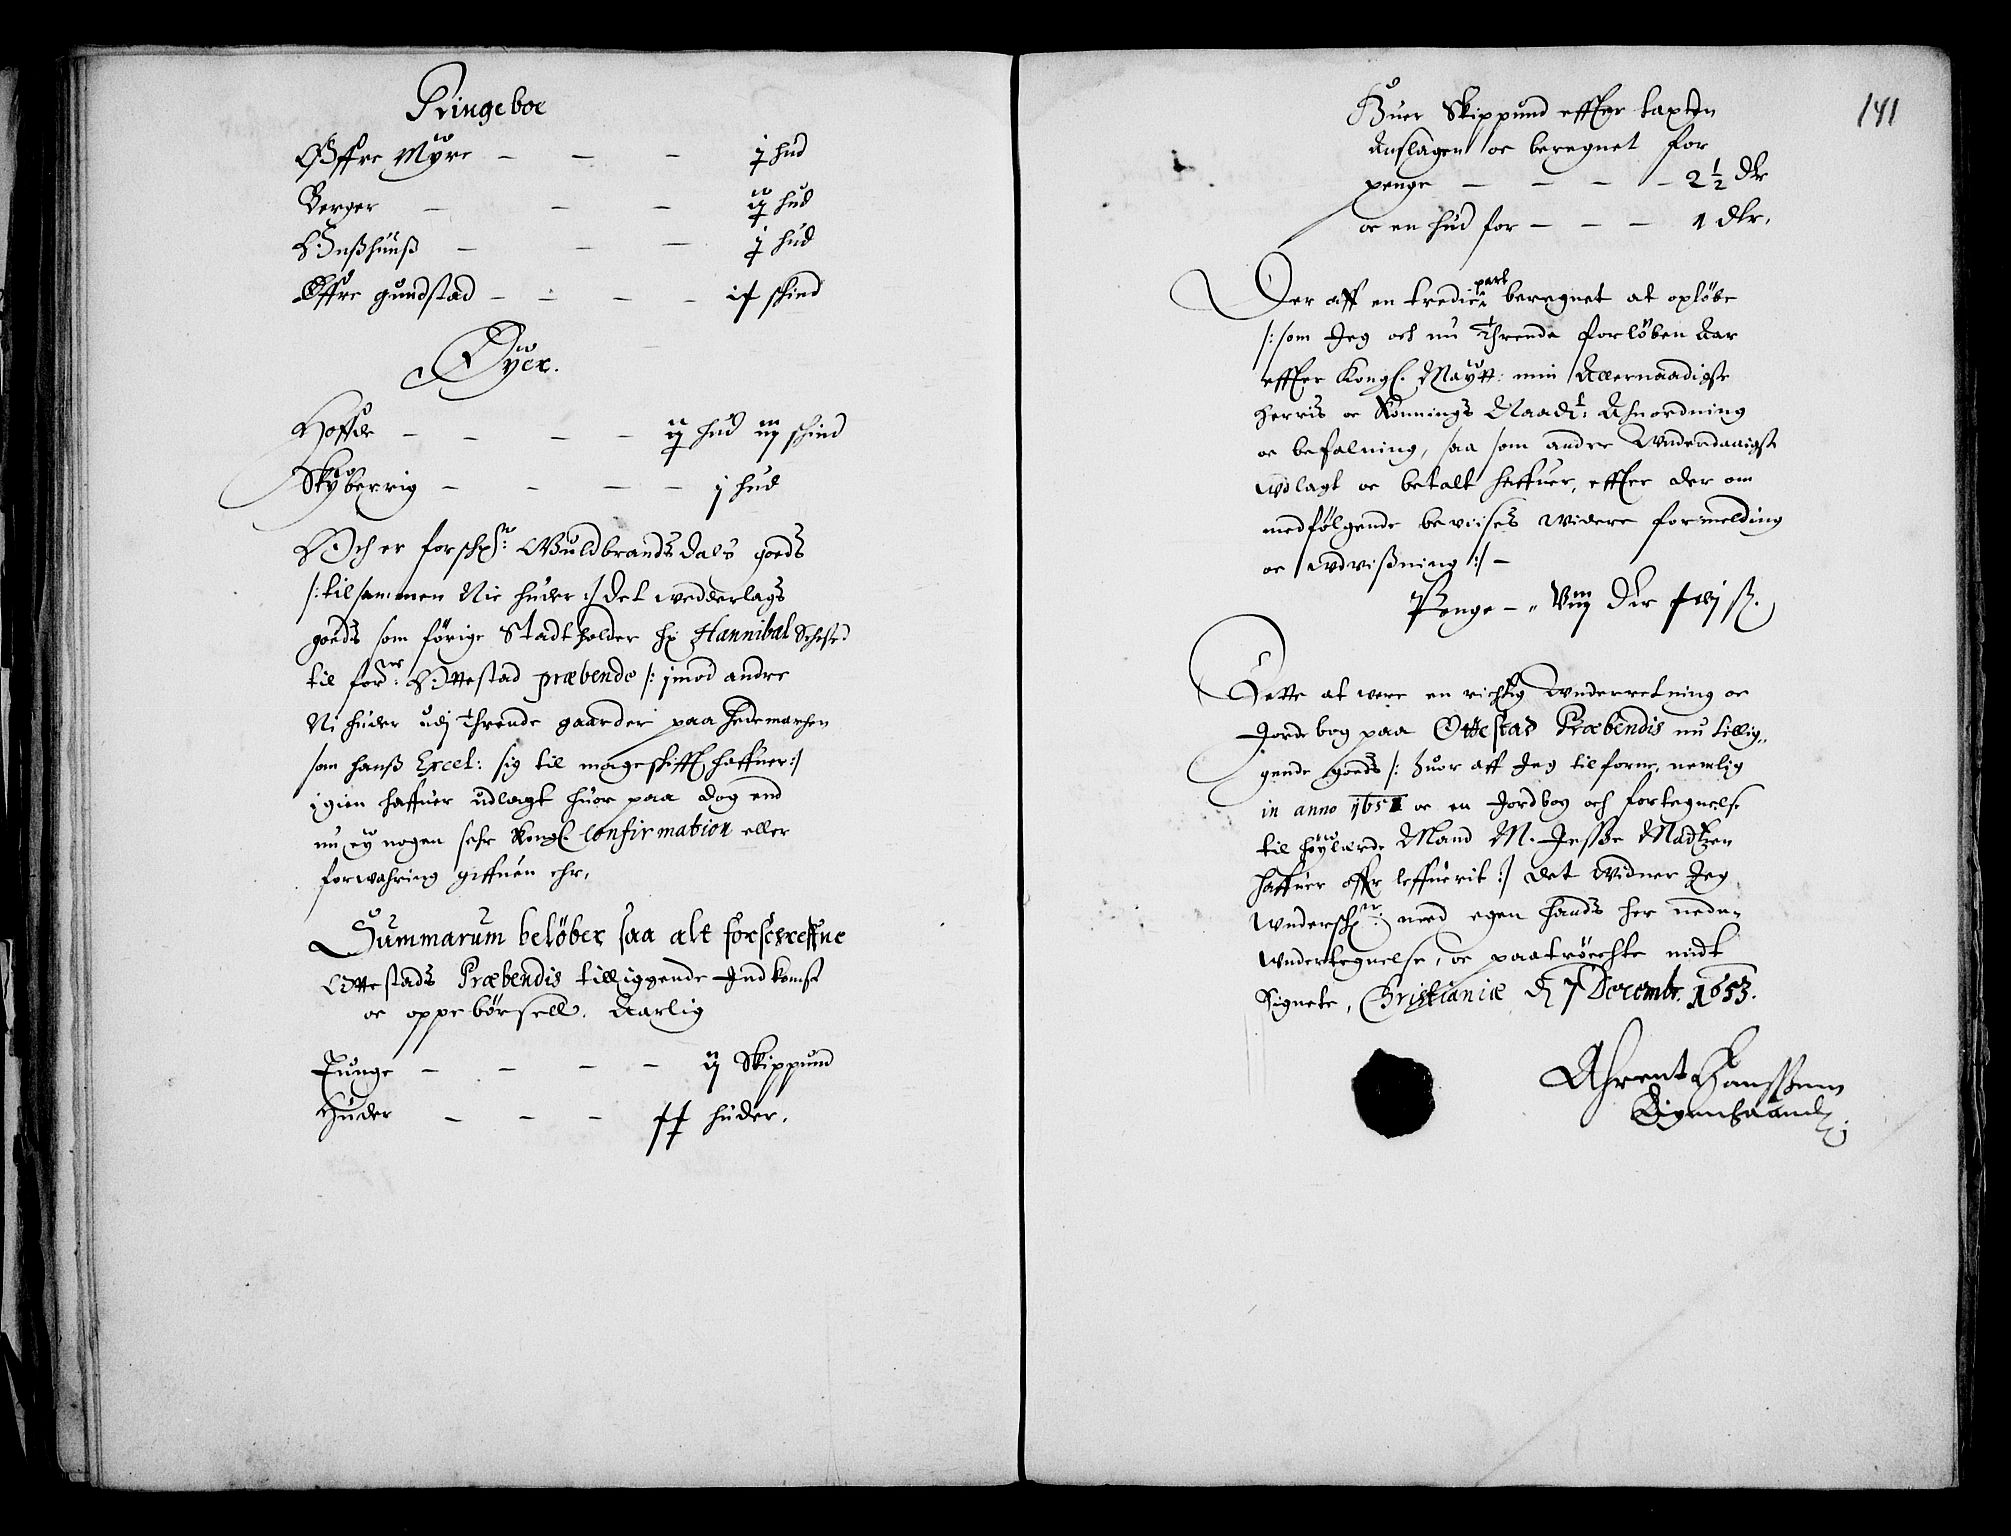 Ringeboe
Øffre Myre — — — j hud
Berger — — — ij hud
— — — j hud
Øffre gundstad — — — — skind
Øyer.
Hoffde — — — — ij hud iiij skind
Skyberrig — — — — j hud
Och er forschr: Guldbrandsdals goeds
/: til sammen Nie huder :/ det wedderlags
goeds som förige Stadtholder Hr Hannibal Sehested
til forne: Ottestad præbende /: jmod andre
Ni huder udj Thrende gaarder paa Hedemarchen
som hanß Excel: sig til mageskifft haffuer :/
igien haffuer udlagt huor paa dog end
nu ey nogen Kongl. Confirmation eller
forwahring giffuen ehr.
Summarum belöber saa alt forschreffne
Ottestads Præbendis tilliggende Indkomst
oc oppebörsell. Aarlig
Tunge — — — — ij Skippund
Huder — — — huder.
141
Huer Skippund effter taxten
Anslagen oc beregnet for
penge — — — — 2 ½ dlr
oc en hud for — — — 1 dlr.
Der aff en tredie part beregnet at oplöbe
/: som Jeg och nu Thrende forlöben Aar
effter Kongl. Maytt: min Allernaadigste
Herris oc Konnings Naadt: Ahnordning
oc befalning, saa som andre Wnderdanigst
Wdlagt oc betalt haffuer, effter der om
medfölgende beviises widere formelding
oc Wdvißning :/ —
Penge — Viij dlr
Dette at were en richtig Wnderretning oc
Jordebog paa Ottestad Præbendis nu tillig„
gende goeds /: huor aff Jeg tilforne, nemlig
in anno 1651 oc en Jordbog och fortegnelse
til höylærde Mand M. Jesße Madtzen
haffuer offr leffuerit :/ Det Widner Jeg
Wnderschr: med egen Hands her neden
Wndertegnelse, oc paatröchte mit
Signete, Christianiæ d 7 Decembr. 1653.
Ahrent Hanssenn
Eigenhaand